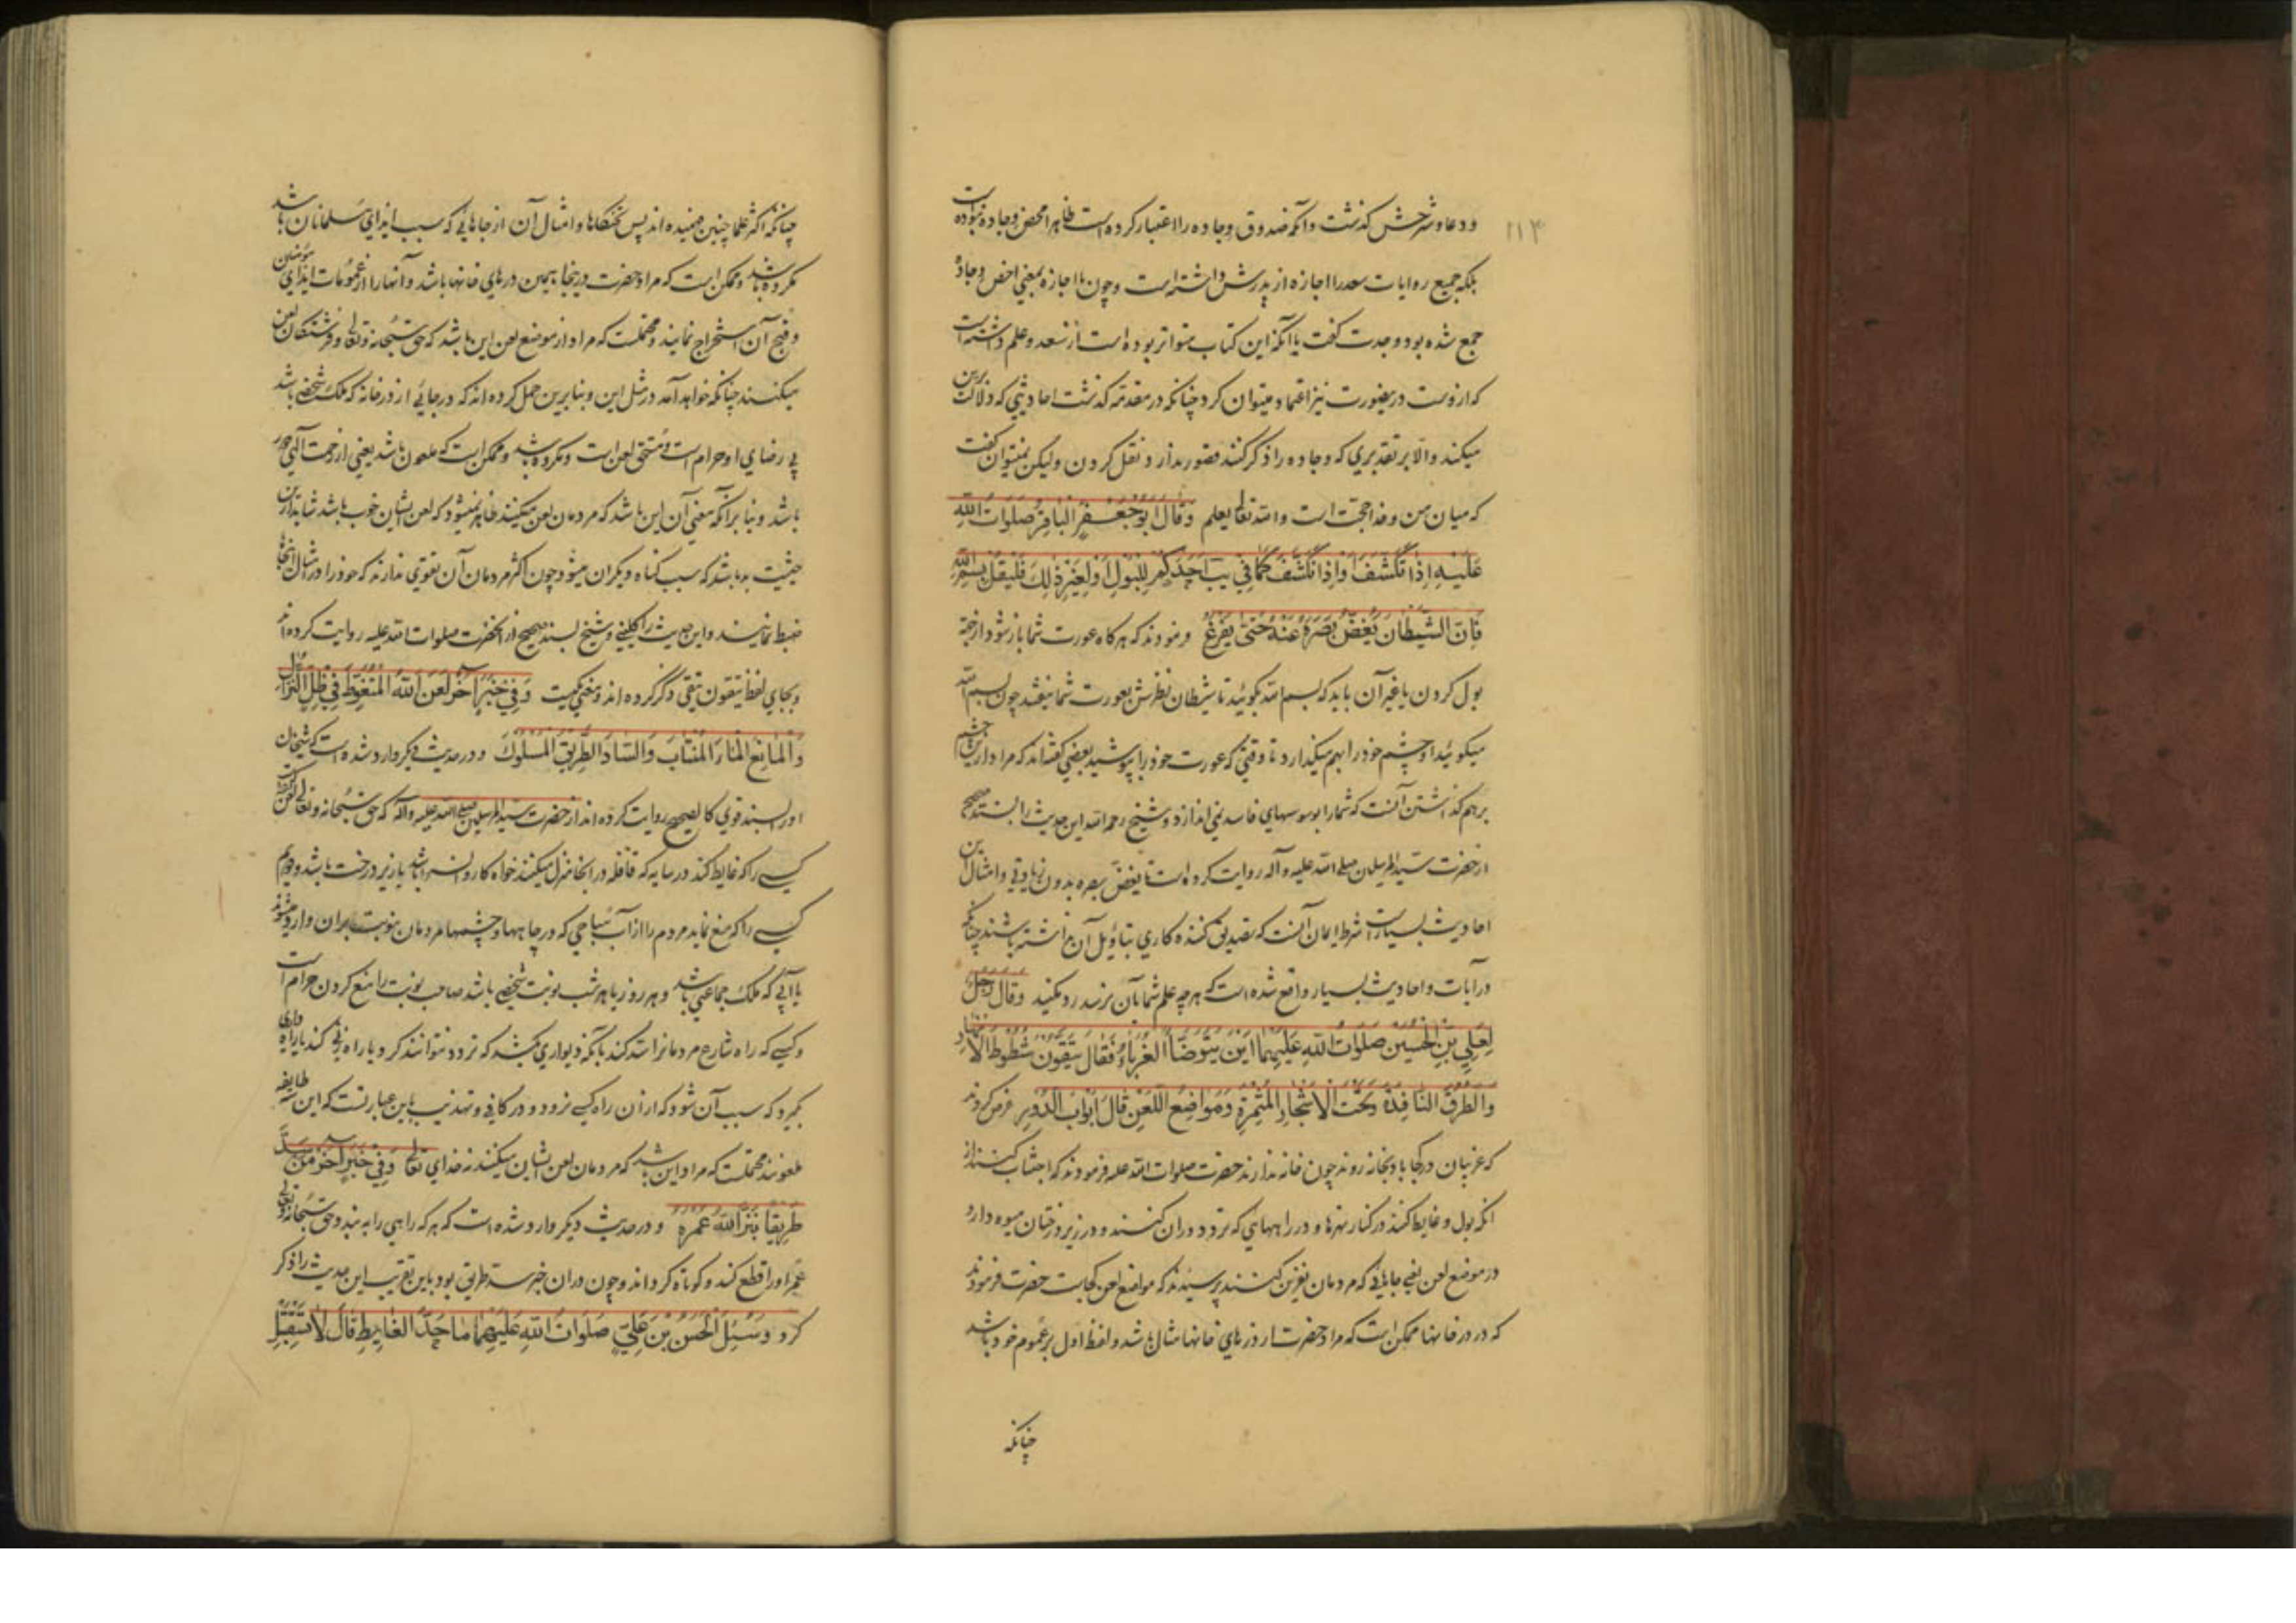 ۱۱۴
ودعا و شرحش کذشت و آنکه صدوق وجاده را اعتبار کرده است ظاهرا محض وجاده نبوده است
بلکه جمیع روایات سعد را اجازه از پدرش داشته است و چون با اجازه بمعنی اخص وجاده
جمع شده بود وجدت کفت یا آنکه این کتاب متواتر بوده است از سعد و علم داشته است
که ازوست درینصورت نیز اعتماد میتوان کرد چنانکه در مقدمه کذشت احادیثی که دلالت برین
میکند و الا بر تقدیری که وجاده را ذکر کنند قصور ندارد نقل کردن ولیکن نمیتوان کفت
که میان من و خدا حجت است و الله تعالی یعلم وَقَالَ اَبُوجَعْفَرٍ الْبَاقِرُ صَلَوَاتُ اللهِ
عَلَیْهِ اِذَا تَکَشَّفَ اَحَدُکُمْ لِلْبَوْلِ اَوْ لِغَیْرِ ذٰلِکَ فَلْیَقُلْ بِسْمِ اللهِ
فَاِنَّ الشَّیْطَانَ یَغُضُّ بَصَرَهُ عَنْهُ حَتّیٰ یَفْرُغَ و فرمودند که هر کاه عورت شما باز شود از جهة
بول کردن یا غیر آن باید که بسم الله بکوئید تا شیطان نظرش بعورت شما نیفتد چون بسم الله
میکوئید او چشم خود را بهم میکذارد تا وقتی که عورت خود را بپوشید بعضی کفته‌اند که مراد ازین چشم
برهم کذاشتن آنست که شما را بوسوسهای فاسد نمی اندازد و شیخ رحمه الله این حدیث را بسند صحیح
از حضرت سید المرسلین صلی الله علیه و آله روایت کرده است تا یغض بصره بدون زیادتی و امثال این
احادیث بسیارست شرط ایمان آنست که تصدیق کنند و کاری بتاویل آن نداشته باشند چنانکه
در آیات و احادیث بسیار واقع شده است که هرچه علم شما بآن نرسد رد مکنید وَقَالَ رَجُلٌ
لِعَلِیِّ بْنِ الْحُسَیْنِ صَلَوَاتُ اللهِ عَلَیْهِمَا اَیْنَ یَتَوَضَّأُ الْغُرَبَاءُ فَقَالَ یَتَّقُوْنَ شُطُوْطَ الْاَنْهَارِ
وَالطُّرُقَ النَّافِذَةَ وَتَحْتَ الْاَشْجَارِ الْمُثْمِرَةِ وَمَوَاضِعَ اللَّعْنِ قَالَ اَبْوَابُ الدُّوْرِ عرض کردند
که غریبان در کجا باد بخانه روند چون خانه ندارند حضرت صلوات الله علیه فرمودند که اجتناب کنند از
انکه بول و غایط کنند در کنار نهرها و در راههائی که تردد در ان کنند و در زیر درختان میوه دار و
در موضع لعن یعنی جاهائی که مردمان نفرین کنند پرسیدند که مواضع لعن کجاست حضرت فرمودند
که در در خانها ممکن است که مراد حضرت از درهای خانها مثال باشد و لفظ اول بر عموم خود باشد
چنانکه
چنانکه اکثر علما چنین فهمیده اند پس تختکاها و امثال آن از جاهائی که سبب ایذای مسلمانان باشد
مکروه باشد و ممکن است که مراد حضرت درینجا همین درهای خانها باشد و آنها را از عمومات ایذای مؤمنین
و قبح آن استخراج نمایند و محتملست که مراد از موضع لعن این باشد که حق سبحانه و تعالی و فرشتکان لعن
میکنند چنانکه خواهد آمد در مثل این و بنابرین حمل کرده اند که در جائی از در خانه که ملک شخصی باشد
بی رضای او حرام است و مستحق لعن است و مکروه باشد و ممکن است که ملعون باشد یعنی از رحمت الهی دور
باشد و بنا بر آنکه معنی آن این باشد که مردمان لعن میکنند ظاهر نمیشود که لعن ایشان خوب باشد شاید ازین
حیثیت بد باشد که سبب کناه دیکران میشود چون اکثر مردمان آن تقوی ندارند که خود را در مثال اینجاها
ضبط نمایند و این حدیث را کلینی و شیخ بسند صحیح از انحضرت صلوات الله علیه روایت کرده اند
و بجای لفظ یتقون یتقی ذکر کرده اند و معنی یکیست وَفِی خَبَرٍ اٰخَرَ لَعَنَ اللهُ الْمُتَغَوِّطَ فِی ظِلِّ النُّزَّالِ
وَالْمَانِعَ الْمَاءَ الْمُنْتَابَ وَالسَّادَّ الطَّرِیْقَ الْمَسْلُوْکَ و در حدیث دیکر وارد شده است که شیخان
اورا بسند قوی کالصحیح روایت کرده اند از حضرت سید المرسلین صلی الله علیه و آله که حق سبحانه و تعالی لعن کند
کسی را که غایط کند در سایه که قافله در انجا منزل میکنند خواه کاروانسرا باشد یا زیر درخت باشد و دیوار
کسی را که منع نماید مردم را از آب مباحی که در چاهها و چشمها مردمان بنوبت بران وارد میشوند
یا آبی که ملک جماعتی باشد و هر روز یا هر شب نوبت شخصی باشد صاحب نوبت را منع کردن حرام است
و کسی که راه شارع مردمانرا سد کند یا آنکه دیواری بکشد که تردد نتوانند کرد یا راه زنی کند یا راه داری
بکیرد که سبب آن شود که از ان راه کسی نرود و در کافی و تهذیب باین عبارتست که این سه طایفه
ملعونند محتملست که مراد این باشد که مردمان لعن ایشان میکنند نه خدای تعالی وَفِی خَبَرٍ اٰخَرَ مَنْ سَدَّ
طَرِیْقًا بَتَرَ اللهُ عُمُرَهُ و در حدیث دیکر وارد شده است که هر که راهی را به بندد حق سبحانه و تعالی
عمر او را قطع کند و کوتاه کرداند و چون دران خبر سد طریق بود باین تقریب این حدیث را ذکر
کرد وَسُئِلَ الْحَسَنُ بْنُ عَلِیٍّ صَلَوَاتُ اللهِ عَلَیْهِمَا مَا حَدُّ الْغَایِطِ قَالَ لَا تَسْتَقْبِلِ